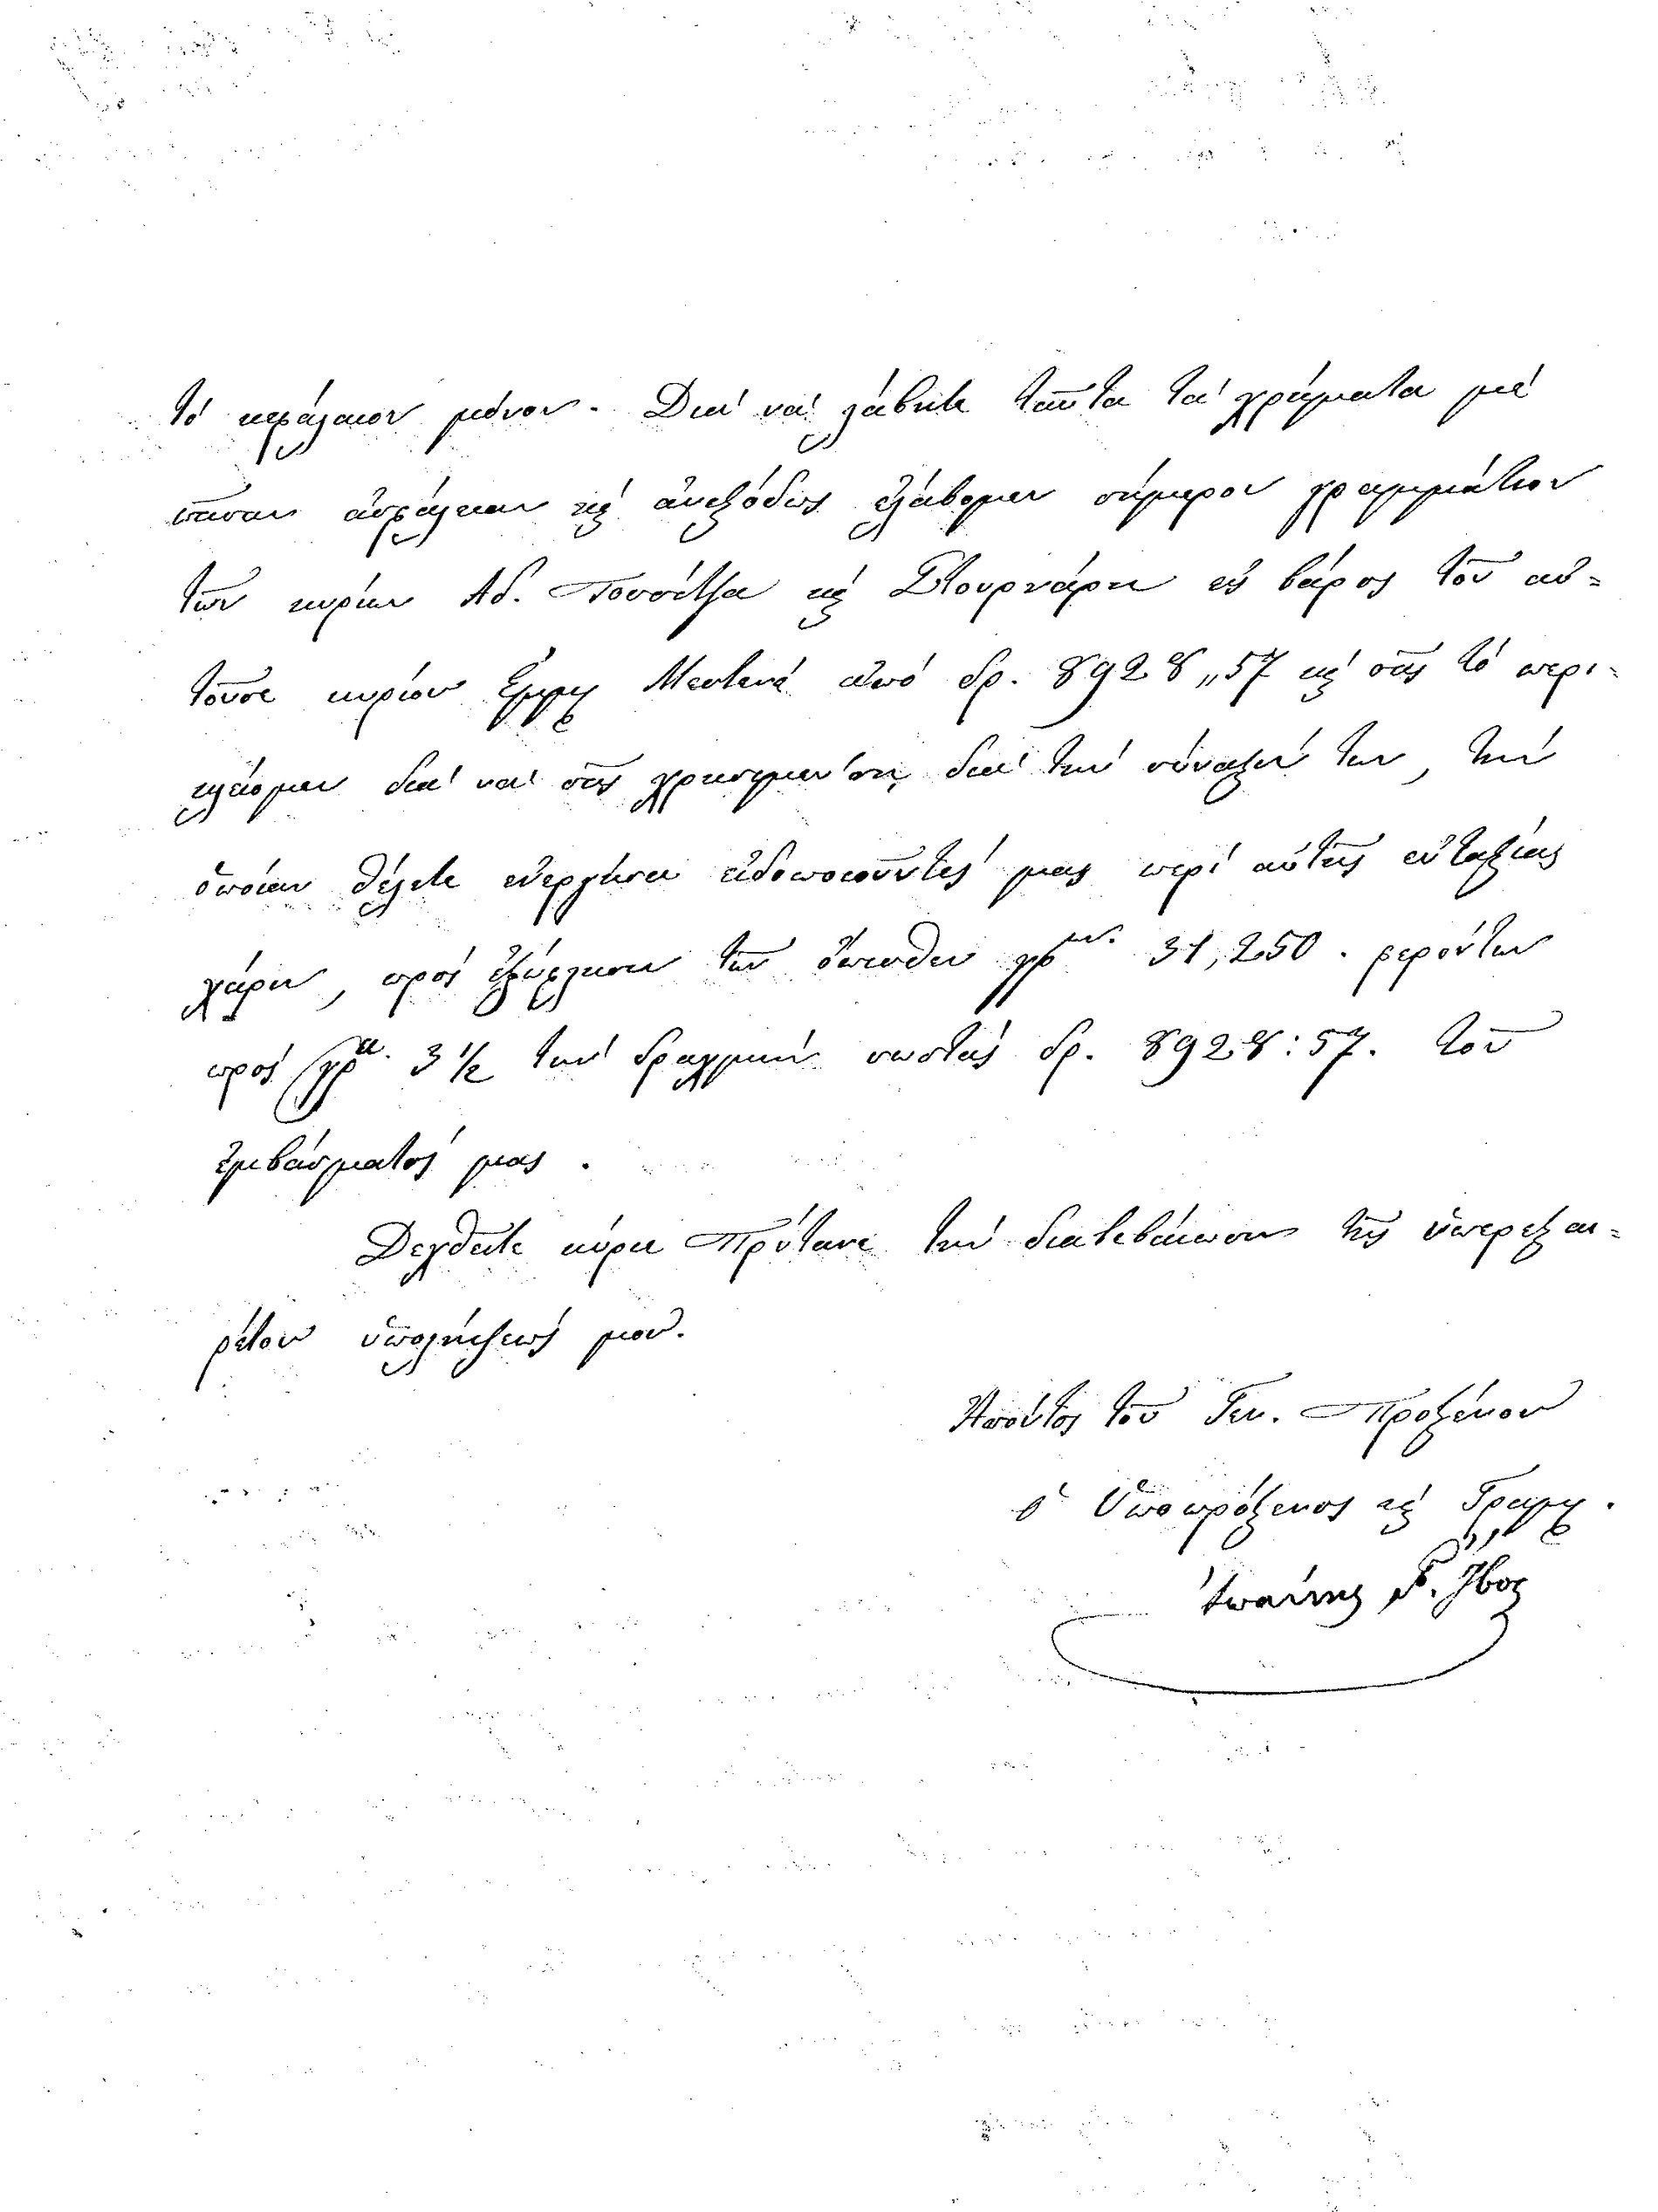 τὸ κεφάλαιον μόνον. Διὰ νὰ λάβητε ταῦτα τὰ χρήματα μὲ
πᾶσαν ἀσφάλειαν κ ἀνεξόδως ἐλάβομεν σήμερον γραμμάτιον
τῶν κυρίων Ἀδ. Τοσσίτζα κ Στουρνάρη εἰς βάρος τοῦ αὐ-
τοῦσε κυρίου δρ. 8928,,57 κ σᾶς τὸ περι-
κλείομεν διὰ νὰ σᾶς χρησιμεύσῃ διὰ τὴν σύναξίν των, τὴν
ὁποίαν θέλετε ἐνεργήσει εἰδοποιοῦντές μας περὶ αὐτῆς εὐταξίας
χάριν, πρὸς ἐξόφλησιν τῶν ὄπισθεν γρ 31,250. φερόντων
πρὸς γρ 3 1/2 τὴν δραχμὴν σωστὰς δρ. 8928:57. τοῦ
ἐμβάσματός μας.
Δεχθῆτε κύριε Πρύτανι τὴν διαβεβαίωσιν τῆς ὑπερεξαι-
ρέτου ὑπολήψεώς μου.
Ἀπόντος τοῦ Γεν. Προξένου
ὁ Ὑποπρόξενος κ Γραμμ.
Ἰωάννης